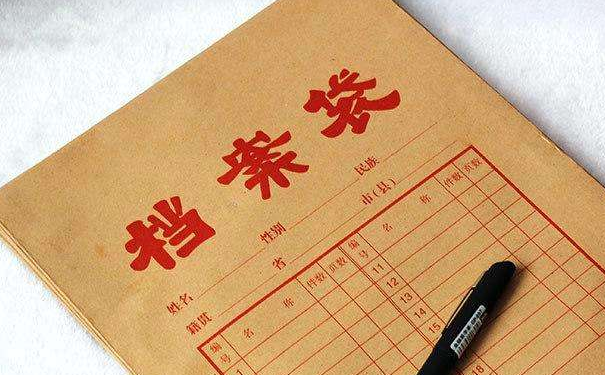 档案袋
姓名 性别 民族
籍贯 省 市(县)
编号 名 称 件数 页数 编号 名 称 件数 页数
1 11
12
13
14
15
18